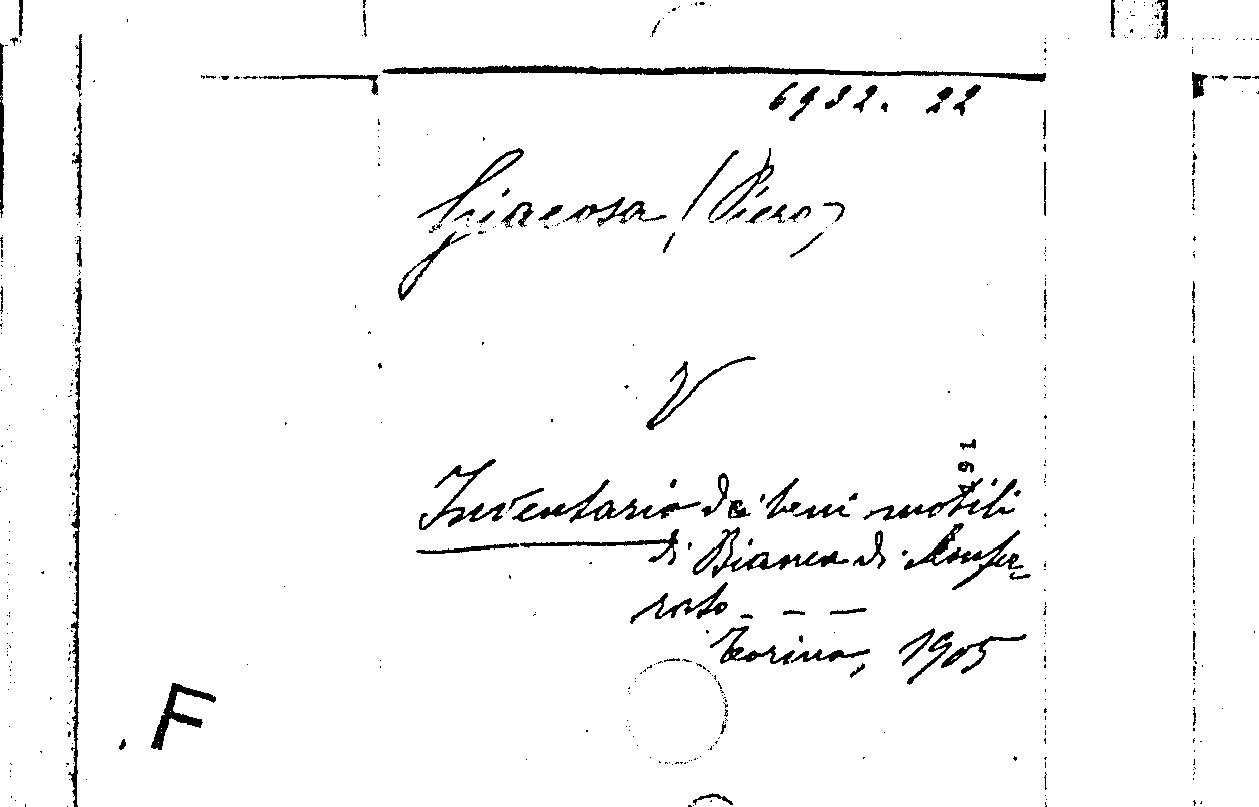 6932. 22
Giacosa (Piero)
V
Inventario dei beni mobili
di Bianca di Monfer-
rato - - -
Torino, 1905
F